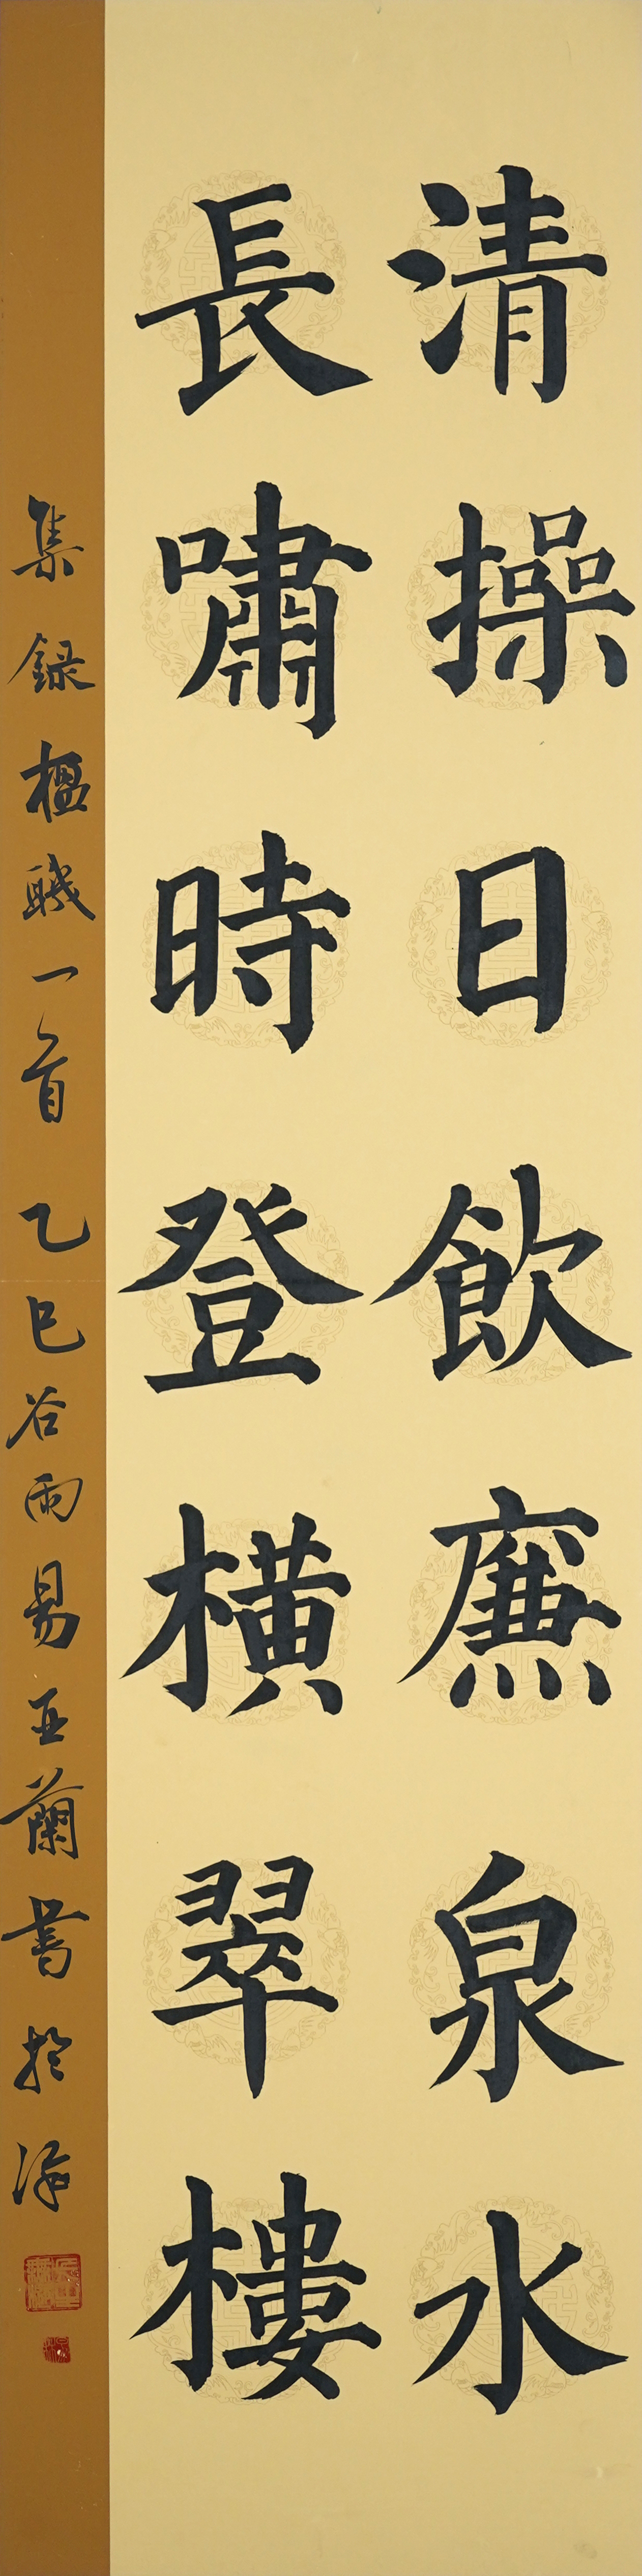 清操日飲廉泉水
長嘯時登橫翠樓
集録楹聮一首 乙巳谷雨易亞蘭書於